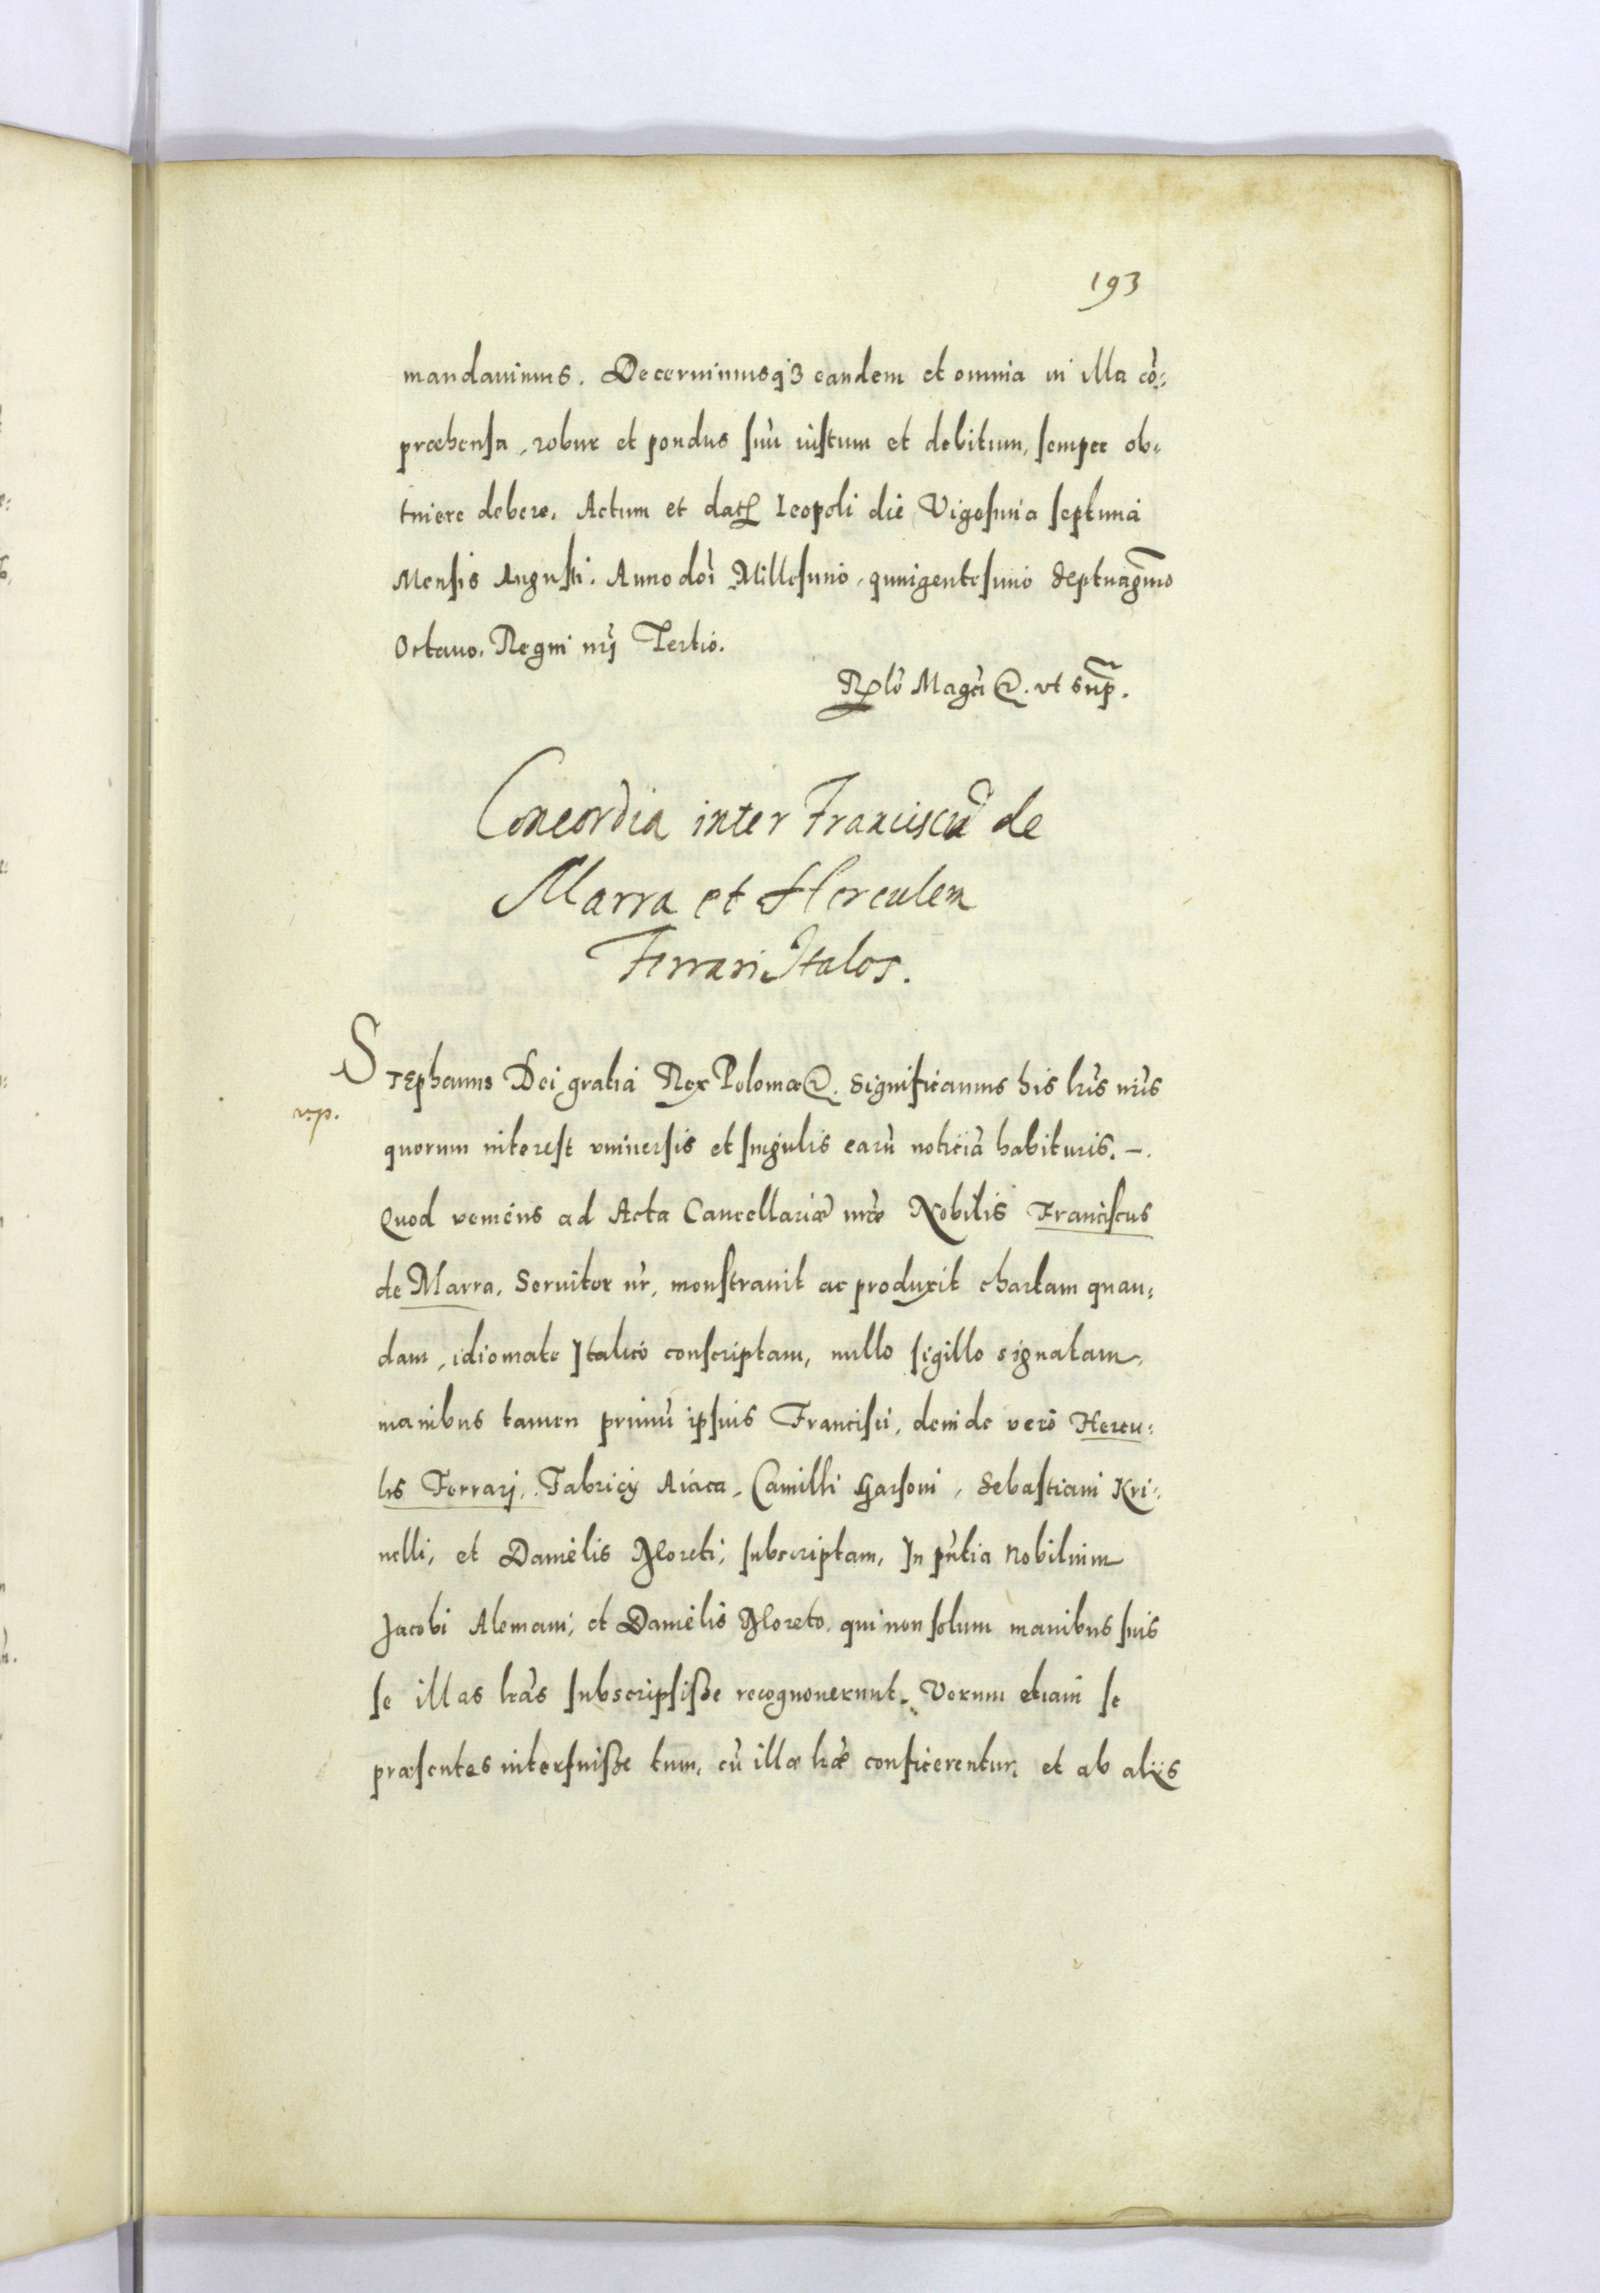 193
mandauimus. Decernimusq3 eandem et omnia in illa cõ:
præhensa, robur et pondus suũ iustum et debitum, semper ob:
tinere debere. Actum et dat Leopoli die Vigesima septima
Mensis Augusti. Anno doi Millesimo, quingentesimo Septuagmo
Octauo. Regni nrj Tertio.
Rlõ Magci @. vt sup.
Concordia inter Franciscũ de
Marra et Herculem
Ferrari Italos.
Stephanus Dei gratia Rex Poloniæ @. Significamus his lris nris
v.p.
quorum interest vniuersis et singulis earũ noticiã habituris. –.
Quod veniens ad Acta Cancellariæ nræ Nobilis Franciscus
de Marra, Seruitor nr, monstrauit ac produxit chartam quan:
dam, idiomate Italico conscriptam, nullo sigillo signatam,
manibus tamen primũ ipsius Francisci, deinde vero Hercu:
lis Ferrarj, Fabricij Aiaca, Camilli Garsoni, Sebastiani Kri:
nelli, et Danielis Floreti, subscriptam, In pntia Nobilium
Jacobi Alemani, et Danielis Floreto, qui non solum manibus suis
se illas lras subscripsisse recognouerunt, Verum etiam se
præsentes interfuisse tum, cũ illæ lræ conficerentur, et ab alijs